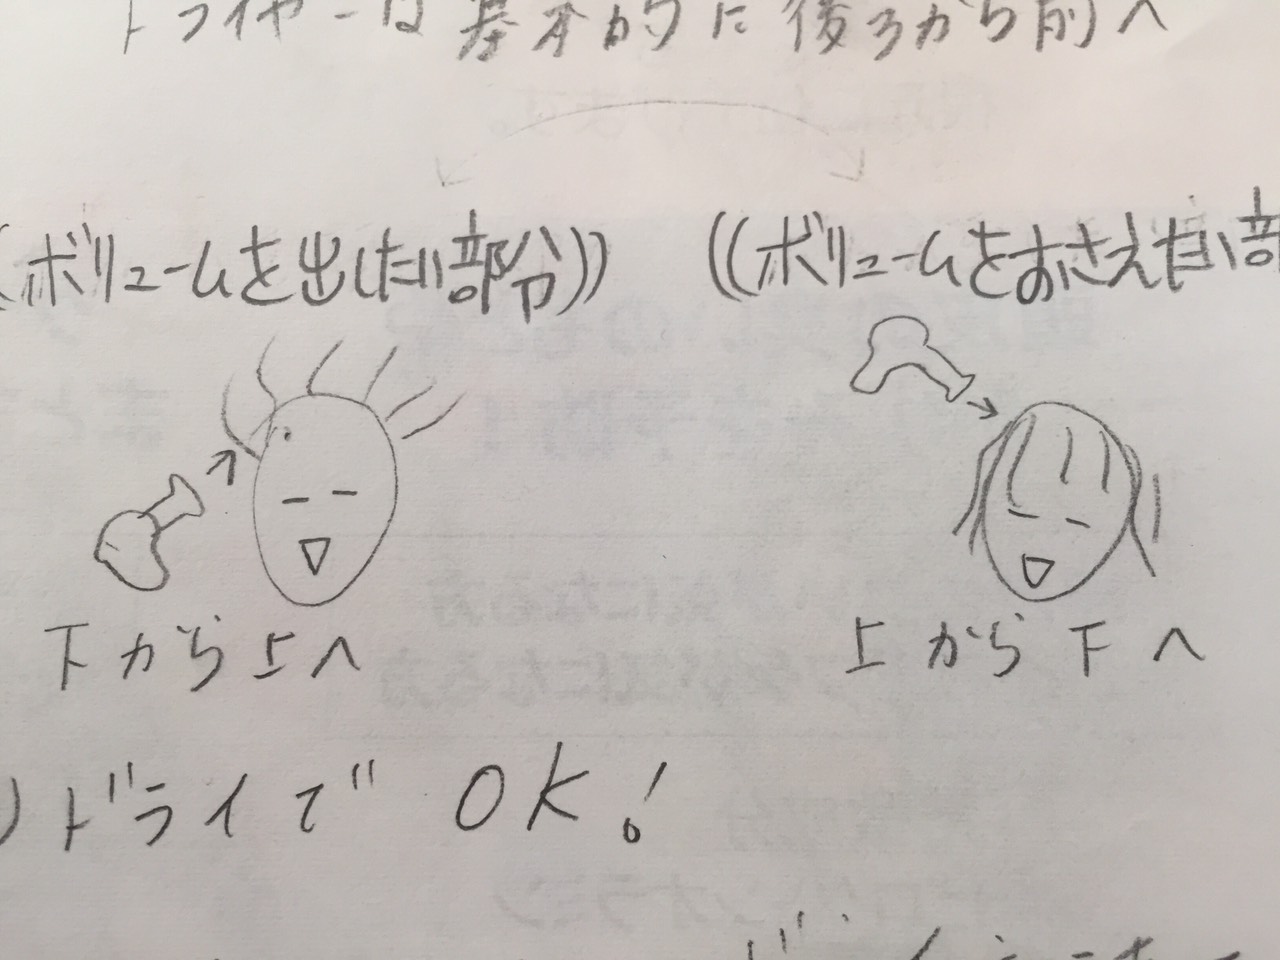 ドライヤーは基本的に後ろから前へ
((ボリュームを出したい部分))
((ボリュームをおさえたい部
下から上へ
上から下へ
)ドライで OK!